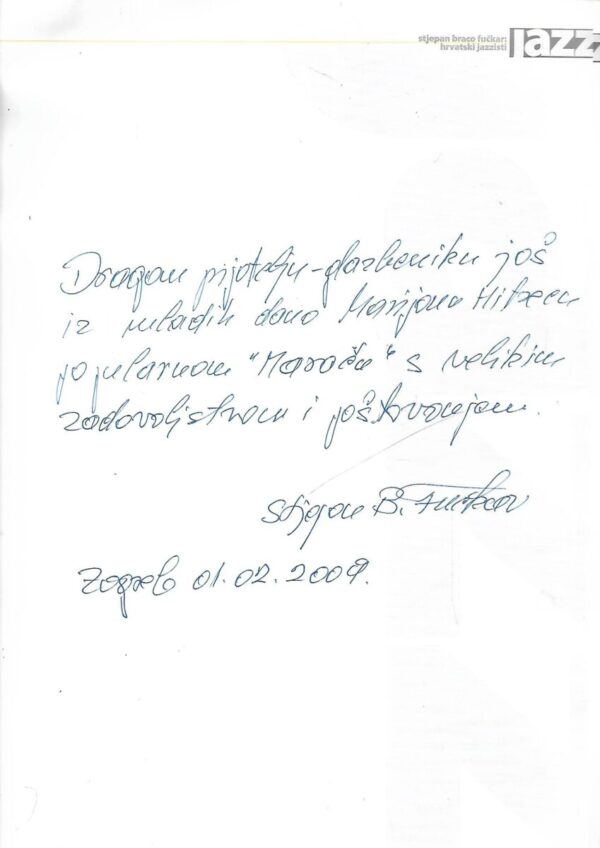 stjepan braco fučkar:
hrvatski jazzisti
jazz
Dragom prijatelju-glazbeniku još
iz mladih dana Marijanu
popularnom "Maraču" s velikim
zadovoljstvom i poštovanjem.
Stjepan B. Fučkar
Zagreb 01.02.2009.